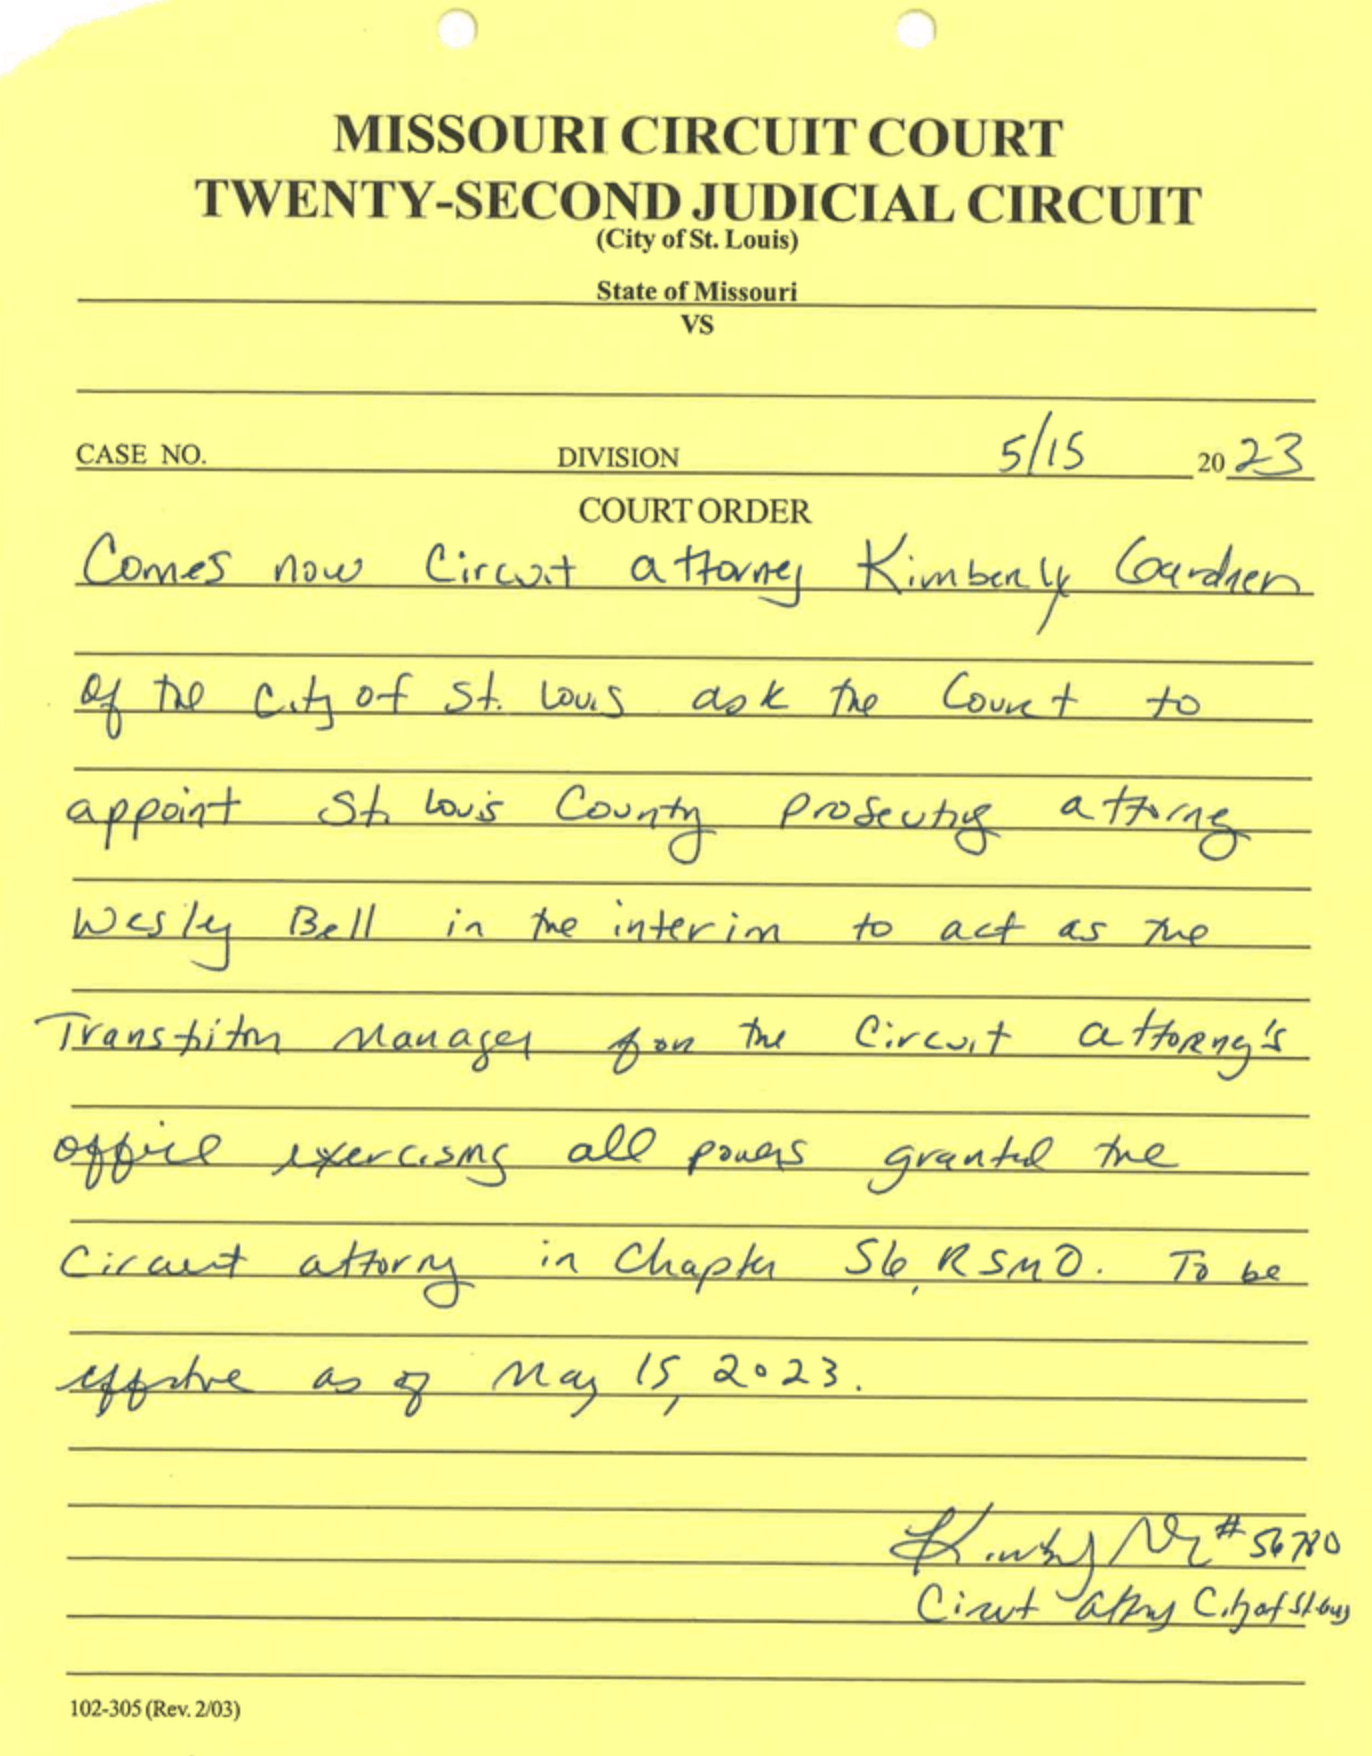 MISSOURI CIRCUIT COURT
TWENTY-SECOND JUDICIAL CIRCUIT
(City of St. Louis)
State of Missouri
VS
CASE NO. DIVISION 5/15 2023
COURT ORDER
Comes now Circuit attorney Kimberly Gardner
of the City of St. Louis ask the Court to
appoint St. Louis County prosecuting attorney
Wesley Bell in the interim to act as the
Transition Manager for the Circuit Attorney's
office exercising all powers granted the
Circuit attorney in Chapter 56, RSMO. To be
effective as of May 15, 2023.
#56780
Circuit Attorney City of St. Louis
102-305 (Rev. 2/03)